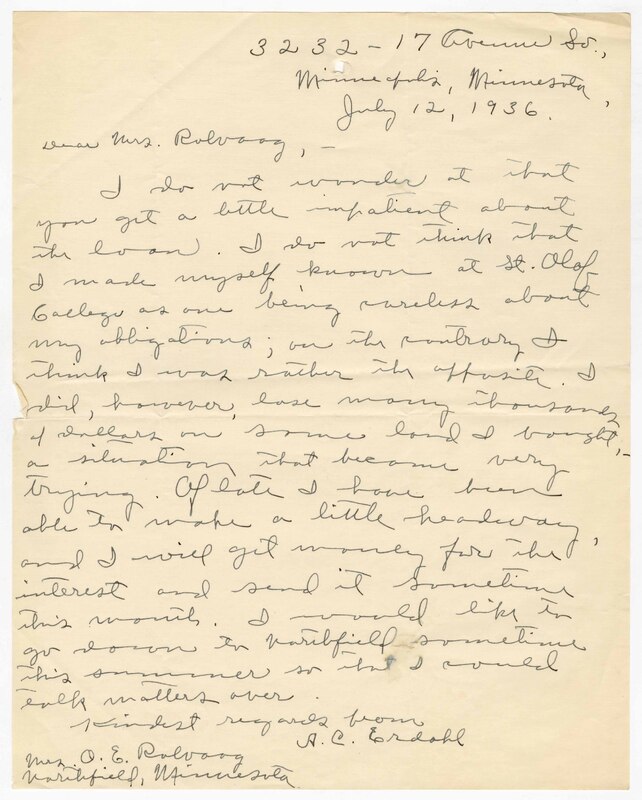 3232 - 17 Avenue So.,
Minneapolis, Minnesota,
July 12, 1936.
Dear Mrs. Rolvaag, -
I do not wonder at that
you get a little impatient about
the loan. I do not think that
I made myself known at St. Olaf
College as one being careless about
my obligations; on the contrary I
think I was rather the opposite. I
did, however, lose many thousands
of dollars on some land I bought, -
a situation that became very
trying. Of late I have been
able to make a little headway,
and I will get money for the
interest and send it sometime
this month. I would like to
go down to Northfield sometime
this summer so that I could
talk matters over.
Kindest regards from
A. C. Erdahl
Mrs. O. E. Rolvaag
Northfield, Minnesota.